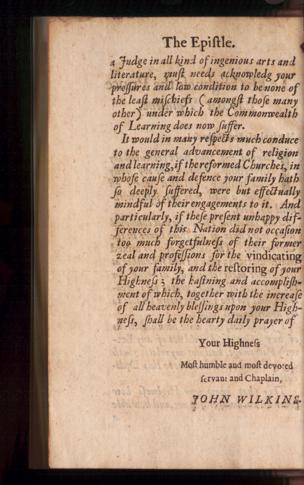 The Epistle.
a Judge in all kind of ingenious arts and
literature, must needs acknowledg your
pressures and low condition to be none of
the least mischiefs (amongst those many
other) under which the Commonwealth
of Learning does now suffer.
It would in many respects much conduce
to the general advancement of religion
and learning, if the reformed Churches, in
whose cause and defence your family hath
so deeply suffered, were but effectually
mindful of their engagements to it. And
particularly, if these present unhappy dif-
ferences of this Nation did not occasion
too much forgetfulness of their former
zeal and professions for the vindicating
of your family, and the restoring of your
Highness; the hastning and accomplish-
ment of which, together with the increase
of all heavenly blessings upon your High-
ness, shall be the hearty daily prayer of
Your Highness
Most humble and most devoted
servant and Chaplain,
JOHN WILKINS.